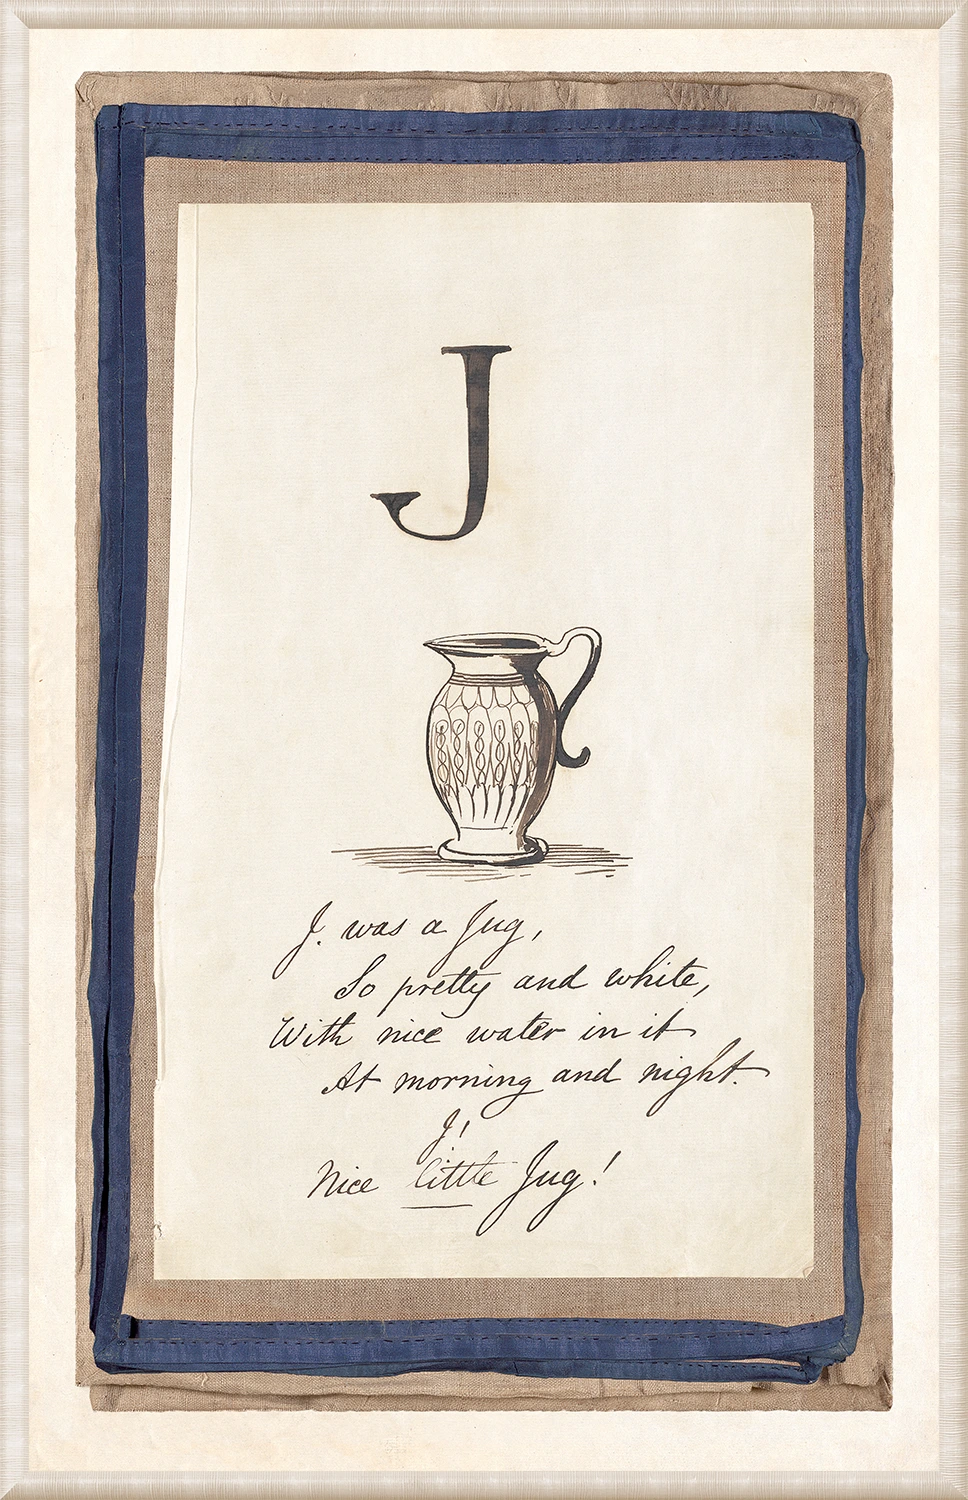 J
J. was a Jug,
So pretty and white,
With nice water in it
At morning and night.
J!
Nice little Jug!